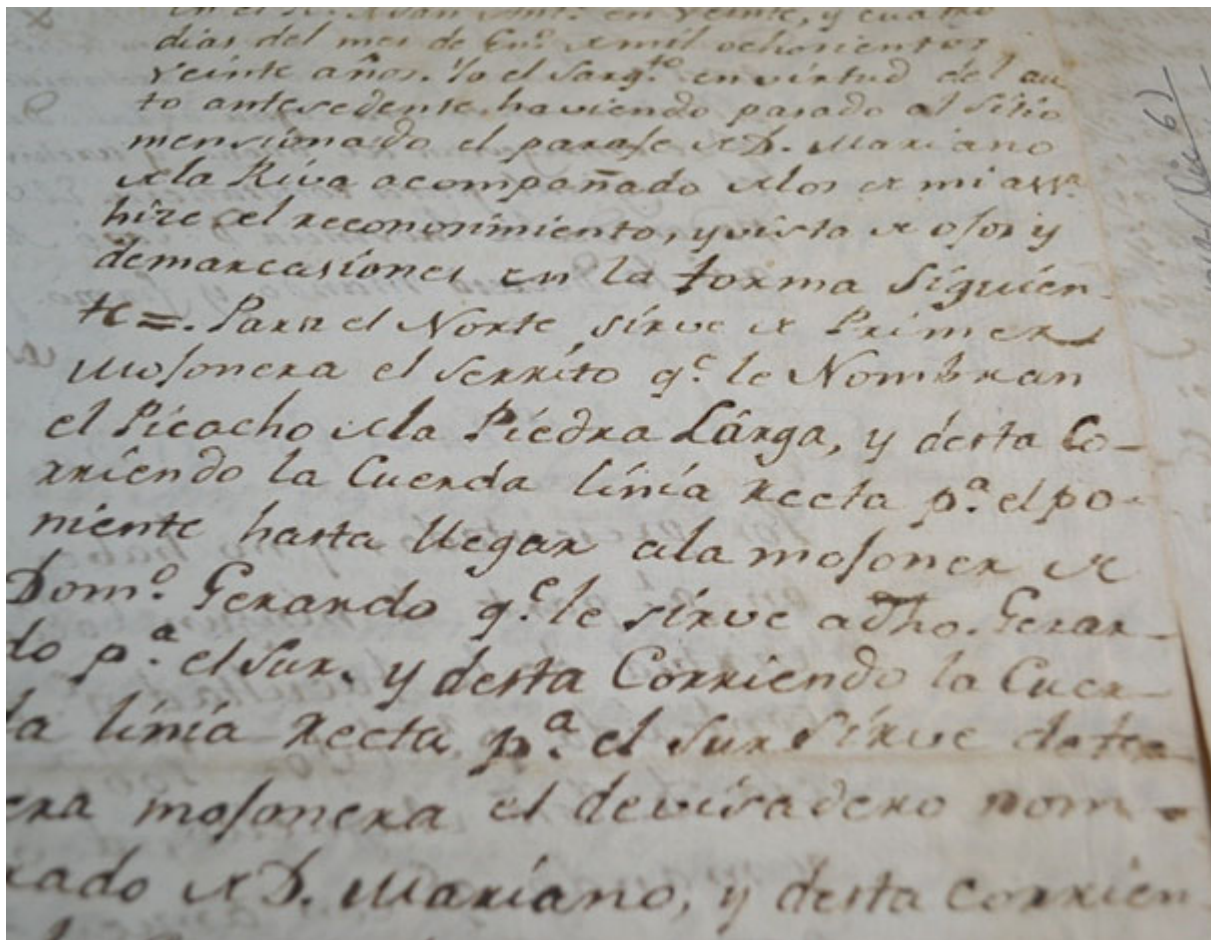 en el R. Sn. Juan Anto. en veinte, y cuatro
dias del mes de Eno. de mil ochosientos
veinte años. Yo el Sargto. en virtud del au
to antesedente, haviendo pasado al sitio
mensionado el paraje de D. Mariano
de la Riva acompañado de los de mi assa.
hize el reconosimiento, y vista de ojos y
demarcasiones en la forma siguien-
te =. Para el Norte, sirve de Primera
mojonera el serrito qe. le Nombran
el Picacho de la Piedra Lárga, y desta Co-
rriendo la Cuerda linia recta pa. el po-
niente hasta llegar a la mojonera de
Domo. Gerardo qe. le sirve a dho. Gerar-
do pa. el Sur. y desta Corriendo la Cuer-
da linia recta pa. el Sur Sirve de terse
era mojonera el devisadero nom-
rado de D. Mariano, y desta corrien